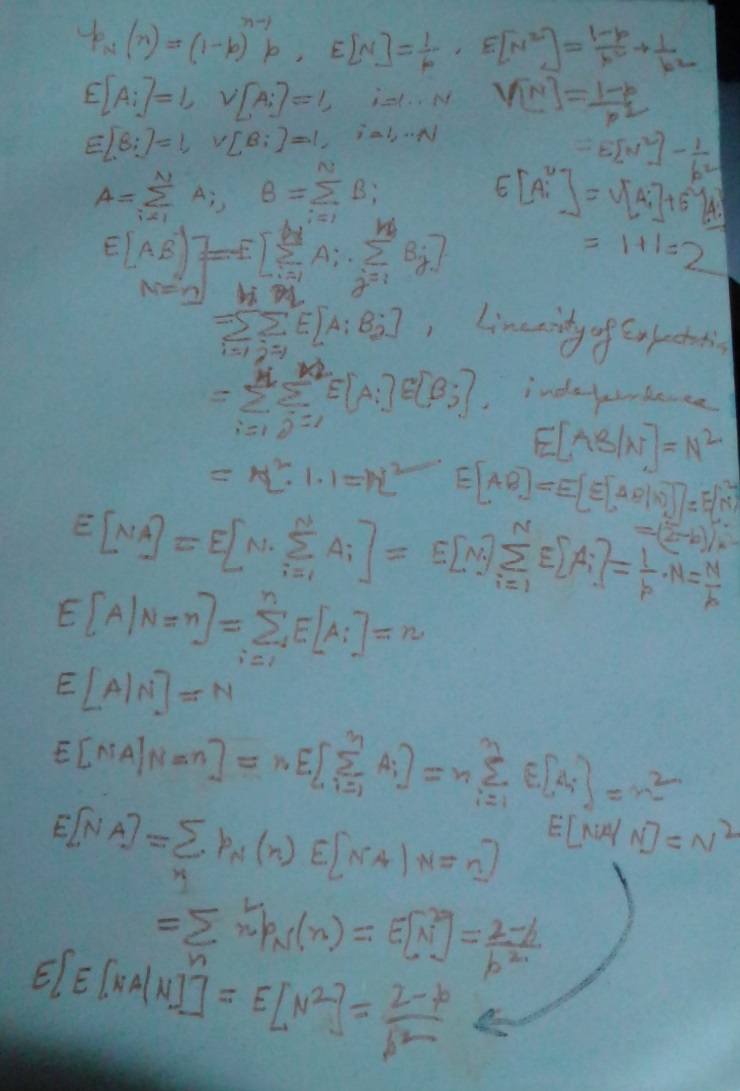 p_N(n) = (1-p)^{n-1} p, E[N] = 1/p. E[N²] = (1-p)/p² + 1/p²
E[A_i]=1, V[A_i]=1, i=1..N V[N] = (1-p)/p²
E[B_i]=1, V[B_i]=1, i=1,..N = E[N²] - 1/p²
A = Σ_{i=1}^{N} A_i, B = Σ_{i=1}^{N} B_i E[A_i²] = V[A_i] + E²[A_i]
= 1+1=2
E[AB|N=n] = E[Σ_{i=1} A_i . Σ_{j=1} B_j]
= Σ_{i=1} Σ_{j=1} E[A_i B_j], Linearity of Expectation
= Σ_{i=1} Σ_{j=1} E[A_i] E[B_j], independence
E[AB|N] = N²
= n². 1.1 = n² E[AB] = E[E[AB|N]] = E[N²]
= (2-p)/p²
E[NA] = E[N. Σ_{i=1}^{N} A_i] = E[N] Σ_{i=1}^{N} E[A_i] = 1/p . N = N/p
E[A|N=n] = Σ_{i=1}^{n} E[A_i] = n
E[A|N] = N
E[NA|N=n] = n E[Σ_{i=1}^{n} A_i] = n Σ_{i=1}^{n} E[A_i] = n²
E[NA|N] = N²
E[NA] = Σ_n p_N(n) E[NA|N=n]
= Σ_n n² p_N(n) = E[N²] = (2-p)/p²
E[E[NA|N]] = E[N²] = (2-p)/p²